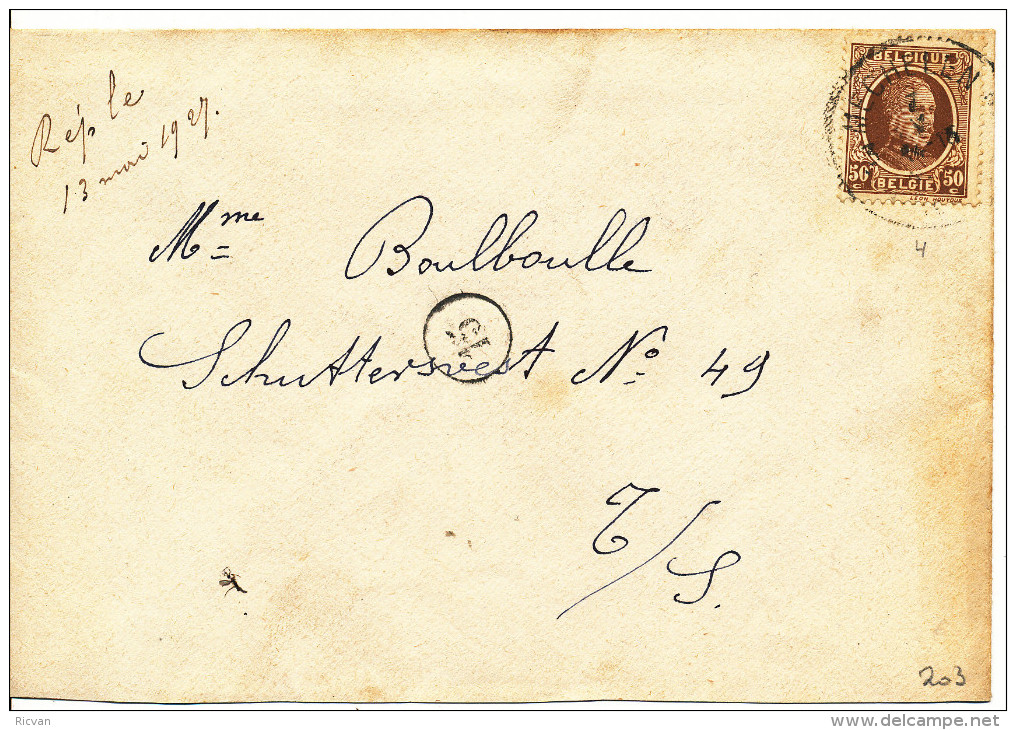 Rép le
13 mai 1927.
BELGIQUE
MECHELEN
50 50
C C
BELGIE
LEON HOUYOUX
4
Mme Boulboulle
Schuttersvest No 49
T/S.
203
Ricvan
delcampe.net